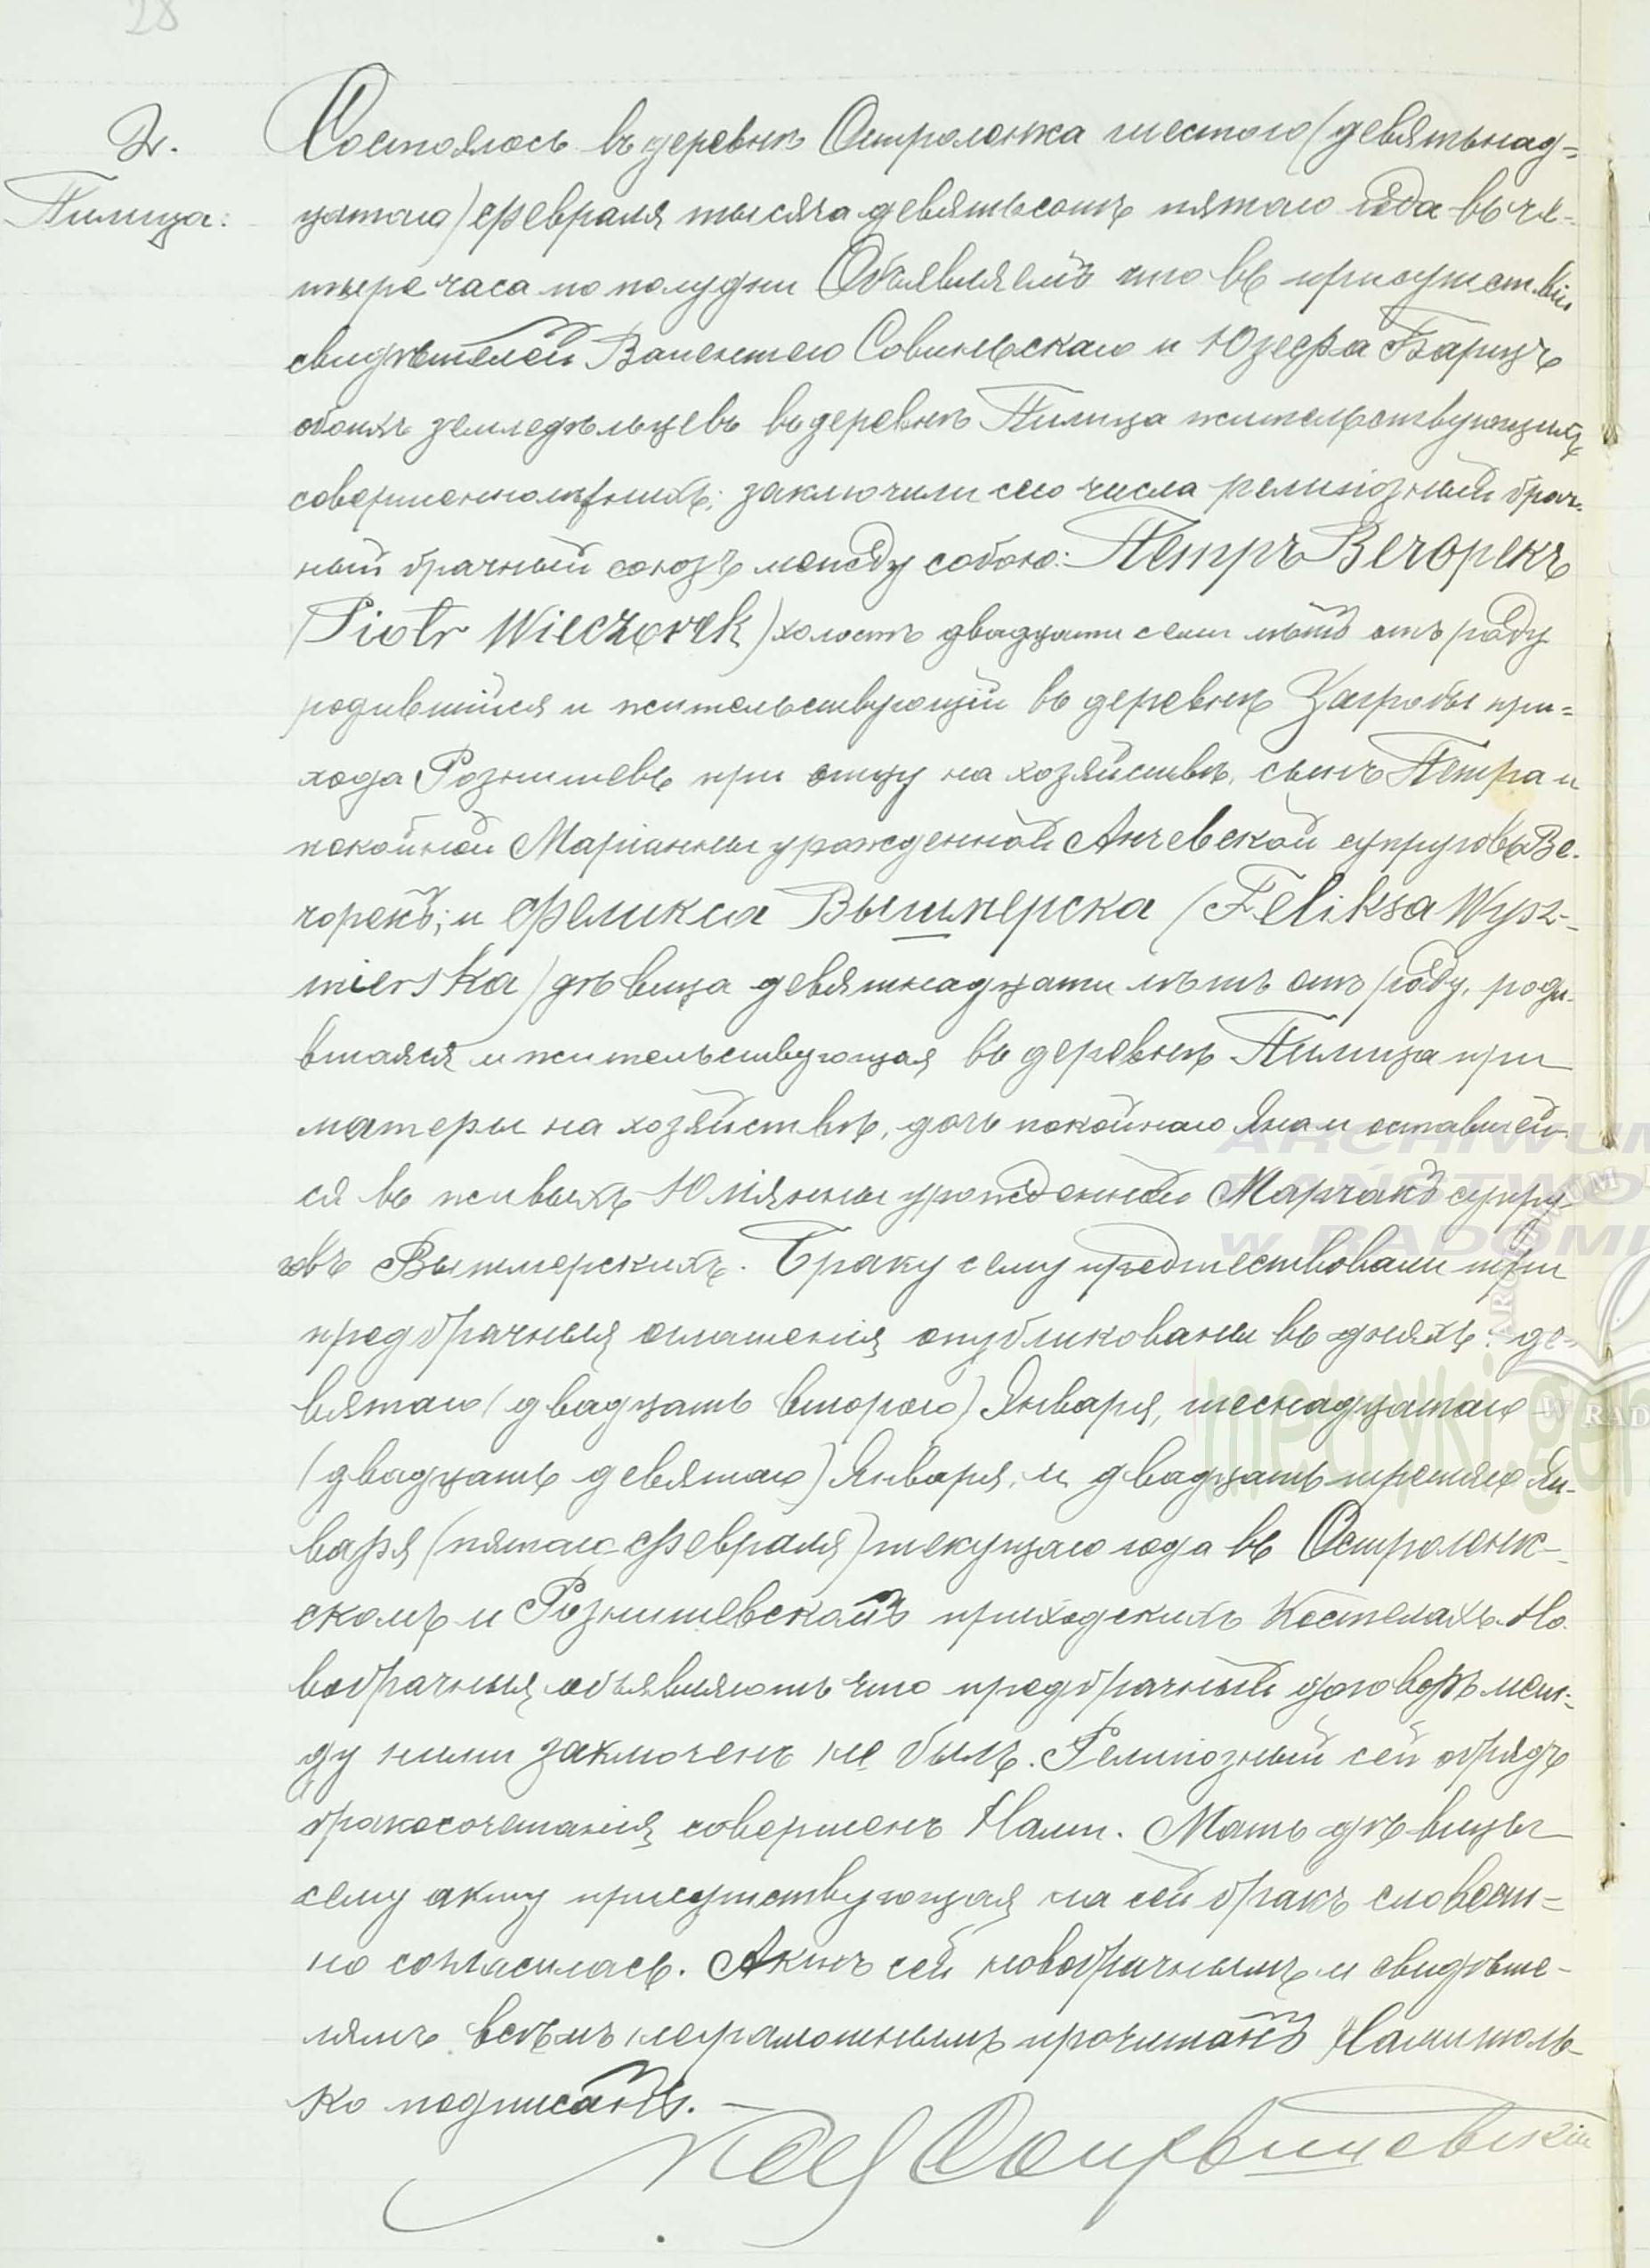 28
21.
Пилица.
Состоялось въ деревнѣ Остроленка шестого (девятьнад=
цатаго) февраля тысяча девятьсотъ пятаго года въ че-
тыре часа по полудни Объявляемъ что въ присутствіи
свидѣтелей Валентего Совинскаго и Юзефа Барцъ
обоихъ земледѣльцевъ въ деревнѣ Пилица жительствующихъ
совершеннолѣтнихъ; заключили сего числа религіозный брач-
ный брачный союзъ между собою: Петръ Вечорекъ
(Piotr Wieczorek) холостъ двадцати семи лѣтъ отъ роду
родившійся и жительствующій въ деревнѣ Загробы при=
хода Рознишевъ при отцу на хозяйствѣ, сынъ Петра и
покойной Маріанны урожденной Анчевской супруговъ Ве-
чорекъ; и Феликса Вышмерска (Feliksa Wysz-
mierska) дѣвица девятнадцати лѣтъ отъ роду, роди-
вшаяся и жительствующая въ деревнѣ Пилица при
матеры на хозяйствѣ, дочь покойнаго Яна и оставшей-
ся въ живыхъ Юліянны урожденной Марчакъ супру-
говъ Вышмерскихъ. Браку сему предшествовали три
предбрачныя оглашенія опубликованы въ дняхъ: де-
вятаго (двадцать второго) Января, шеснадцатаго
(двадцать девятаго) Января, и двадцать третяго Ян-
варя (пятаго февраля) текущаго года въ Остроленк-
скомъ и Рознишевскомъ приходскихъ Костелахъ. Но-
вобрачныя объявляютъ что предбрачный договоръ меж-
ду ними заключенъ не былъ. Религіозный сей обрядъ
бракосочетанія совершенъ Нами. Мать дѣвицы
сему акту присутствующая на сей бракъ словесн=
но согласилась. Актъ сей новобрачнымъ и свидѣте-
лямъ всѣмъ неграмотнымъ прочитанъ Нами толь-
ко подписанъ. —
ARCHIWUM
PAŃSTWO
W RADOMI
metryki.gen
W RAD